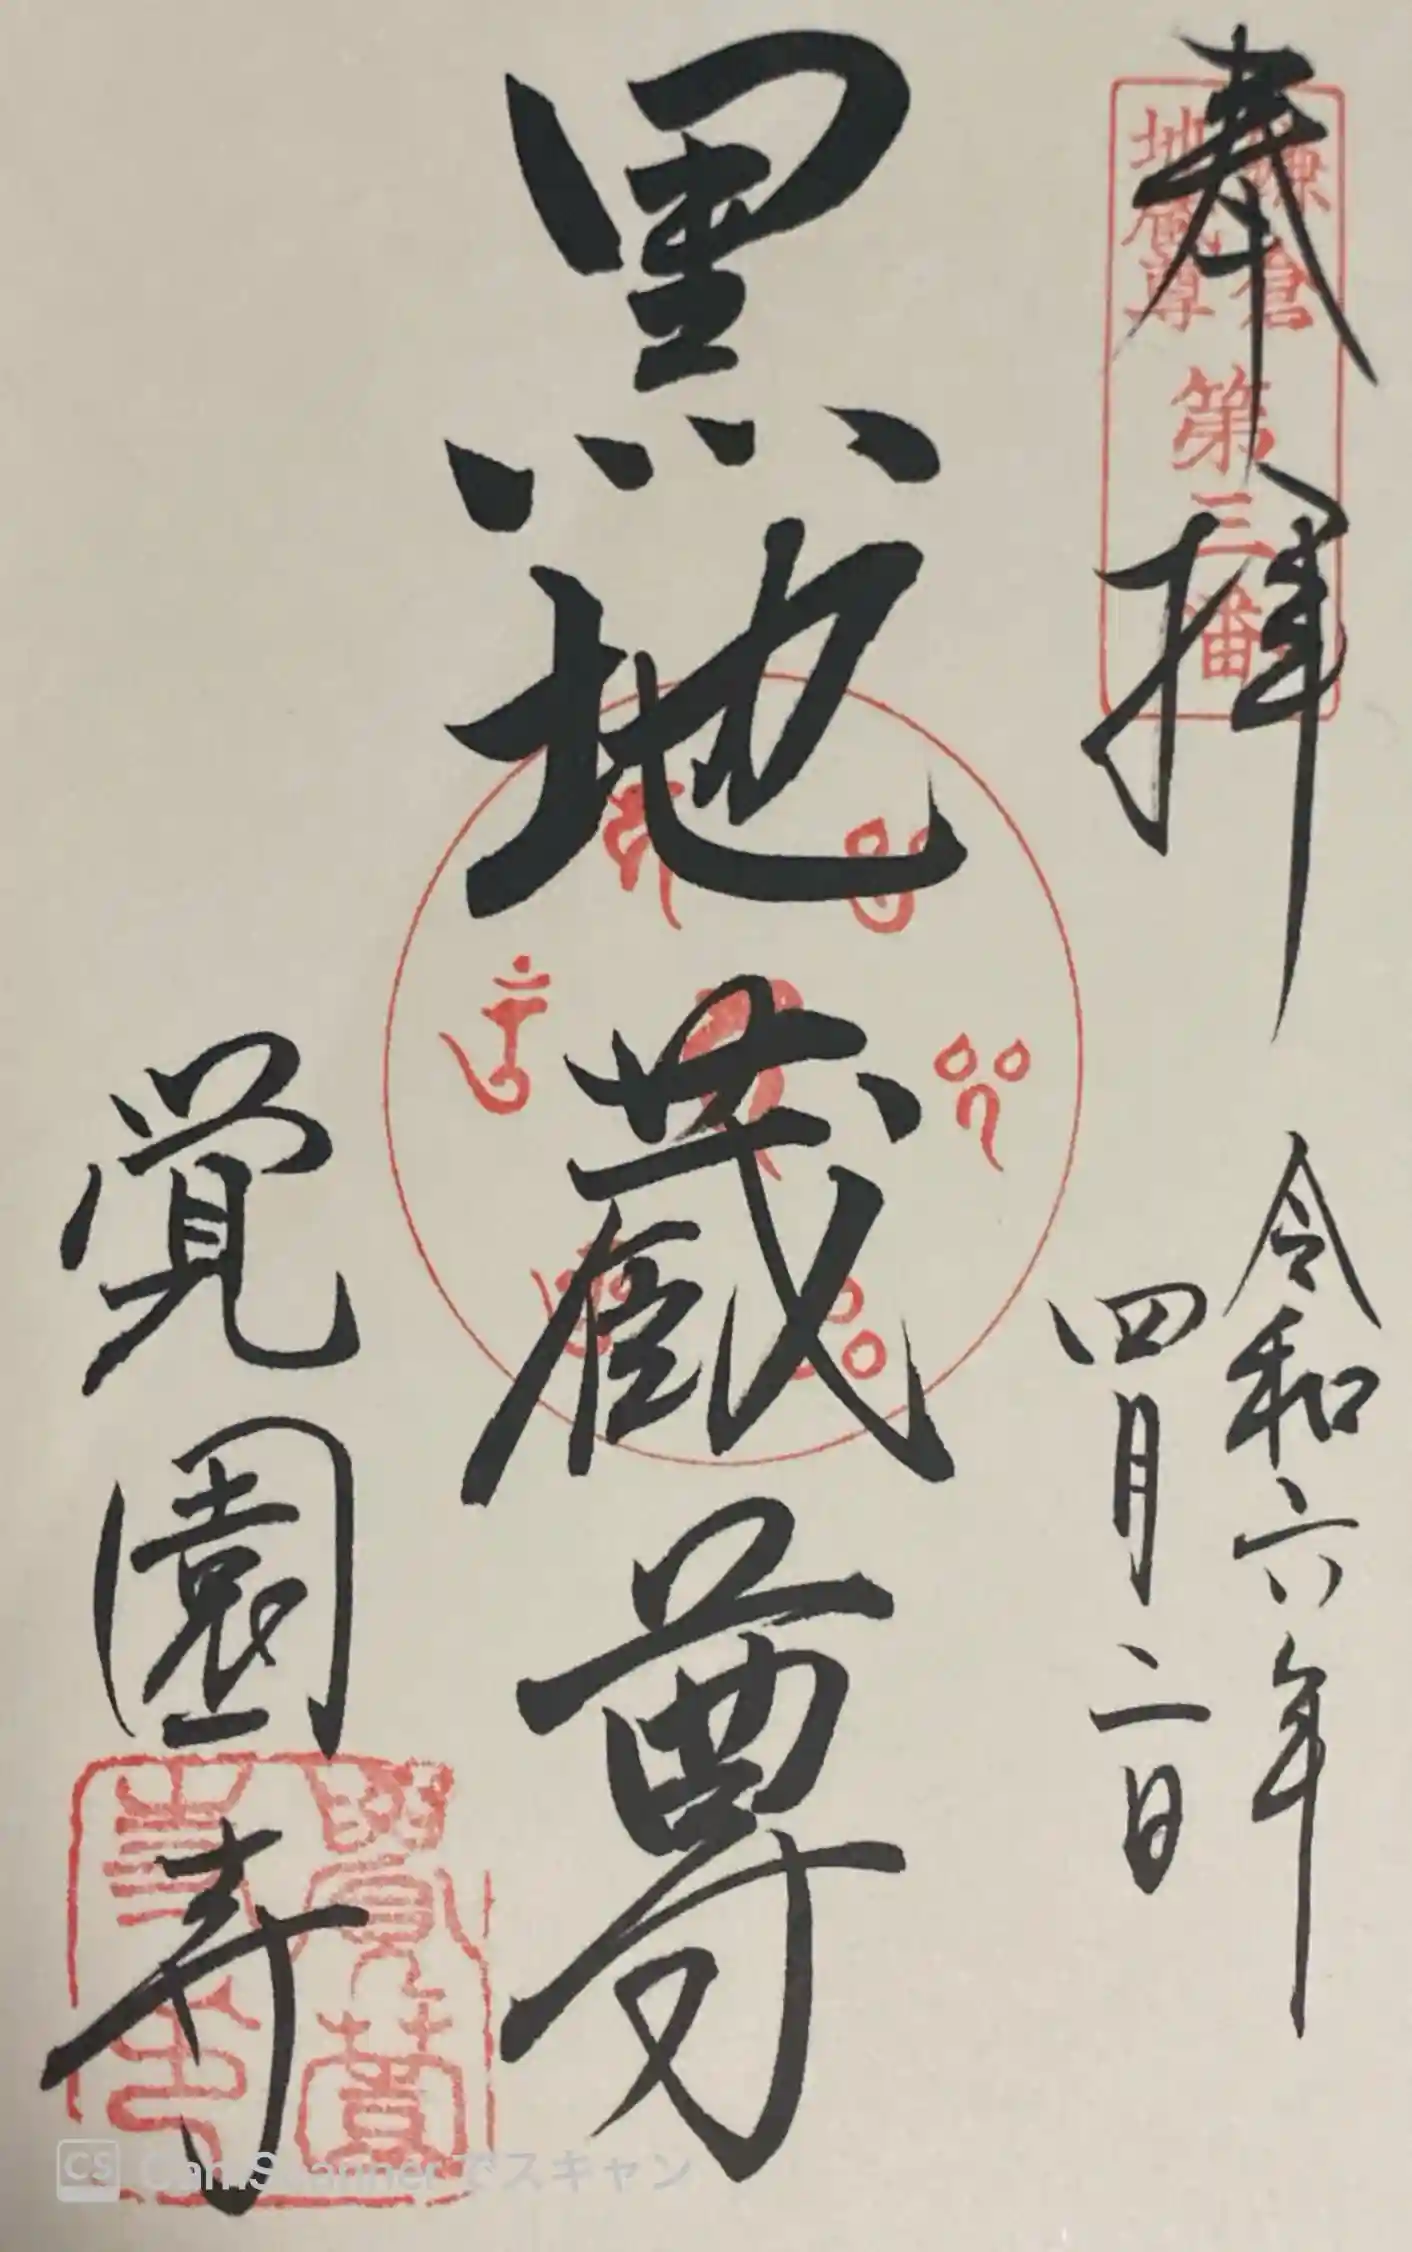 奉拝
鎌倉
地蔵尊
第三番
令和六年
四月二日
黒地蔵尊
覚園寺
CS CamScannerでスキャン